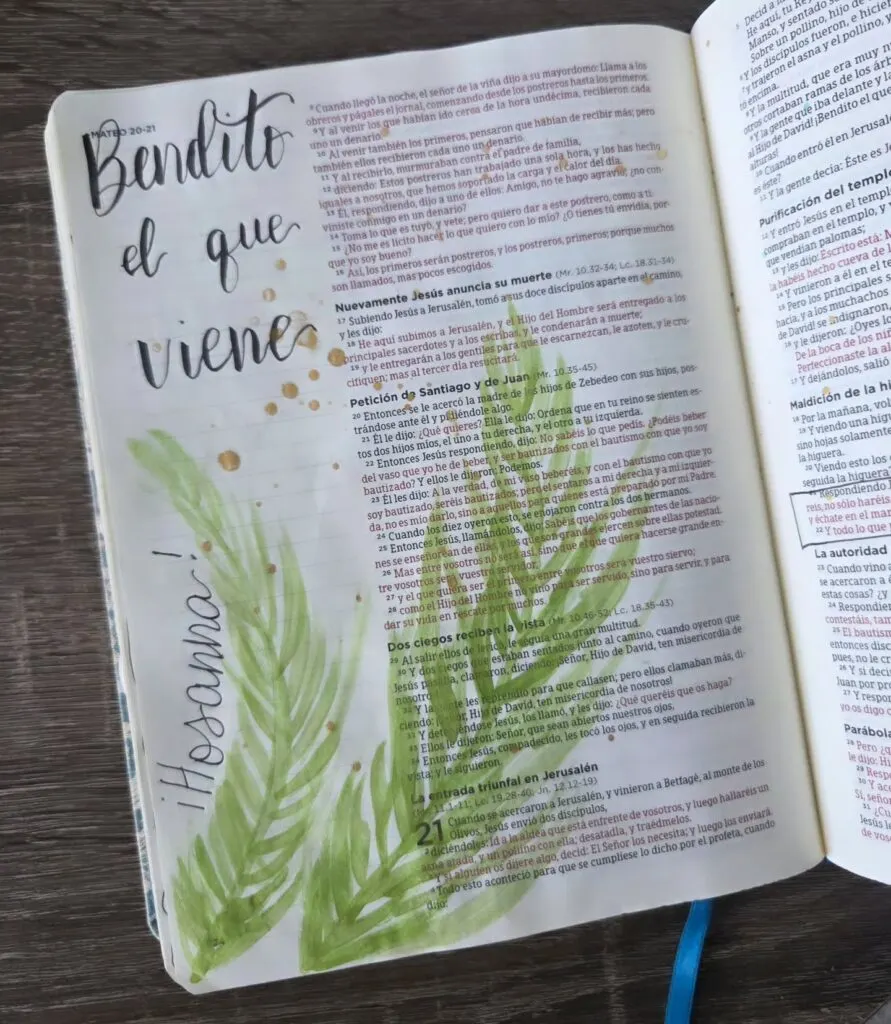 MATEO 20-21
Bendito
el que
viene
¡Hosanna!
⁸Cuando llegó la noche, el señor de la viña dijo a su mayordomo: Llama a los
obreros y págales el jornal, comenzando desde los postreros hasta los primeros.
⁹Y al venir los que habían ido cerca de la hora undécima, recibieron cada
uno un denario.
¹⁰Al venir también los primeros, pensaron que habían de recibir más; pero
también ellos recibieron cada uno un denario.
¹¹Y al recibirlo, murmuraban contra el padre de familia,
¹²diciendo: Estos postreros han trabajado una sola hora, y los has hecho
iguales a nosotros, que hemos soportado la carga y el calor del día.
¹³Él, respondiendo, dijo a uno de ellos: Amigo, no te hago agravio; ¿no con-
viniste conmigo en un denario?
¹⁴Toma lo que es tuyo, y vete; pero quiero dar a este postrero, como a ti.
¹⁵¿No me es lícito hacer lo que quiero con lo mío? ¿O tienes tú envidia, por-
que yo soy bueno?
¹⁶Así, los primeros serán postreros, y los postreros, primeros; porque muchos
son llamados, mas pocos escogidos.
Nuevamente Jesús anuncia su muerte (Mr. 10.32-34; Lc. 18.31-34)
¹⁷Subiendo Jesús a Jerusalén, tomó a sus doce discípulos aparte en el camino,
y les dijo:
¹⁸He aquí subimos a Jerusalén, y el Hijo del Hombre será entregado a los
principales sacerdotes y a los escribas, y le condenarán a muerte;
¹⁹y le entregarán a los gentiles para que le escarnezcan, le azoten, y le cru-
cifiquen; mas al tercer día resucitará.
Petición de Santiago y de Juan (Mr. 10.35-45)
²⁰Entonces se le acercó la madre de los hijos de Zebedeo con sus hijos, pos-
trándose ante él y pidiéndole algo.
²¹Él le dijo: ¿Qué quieres? Ella le dijo: Ordena que en tu reino se sienten es-
tos dos hijos míos, el uno a tu derecha, y el otro a tu izquierda.
²²Entonces Jesús respondiendo, dijo: No sabéis lo que pedís. ¿Podéis beber
del vaso que yo he de beber, y ser bautizados con el bautismo con que yo soy
bautizado? Y ellos le dijeron: Podemos.
²³Él les dijo: A la verdad, de mi vaso beberéis, y con el bautismo con que yo
soy bautizado, seréis bautizados; pero el sentaros a mi derecha y a mi izquier-
da, no es mío darlo, sino a aquellos para quienes está preparado por mi Padre.
²⁴Cuando los diez oyeron esto, se enojaron contra los dos hermanos.
²⁵Entonces Jesús, llamándolos, dijo: Sabéis que los gobernantes de las nacio-
nes se enseñorean de ellas, y los que son grandes ejercen sobre ellas potestad.
²⁶Mas entre vosotros no será así, sino que el que quiera hacerse grande en-
tre vosotros será vuestro servidor,
²⁷y el que quiera ser el primero entre vosotros será vuestro siervo;
²⁸como el Hijo del Hombre no vino para ser servido, sino para servir, y para
dar su vida en rescate por muchos.
Dos ciegos reciben la vista (Mr. 10.46-52; Lc. 18.35-43)
²⁹Al salir ellos de Jericó, le seguía una gran multitud.
³⁰Y dos ciegos que estaban sentados junto al camino, cuando oyeron que
Jesús pasaba, clamaron, diciendo: ¡Señor, Hijo de David, ten misericordia de
nosotros!
³¹Y la gente les reprendió para que callasen; pero ellos clamaban más, di-
ciendo: ¡Señor, Hijo de David, ten misericordia de nosotros!
³²Y deteniéndose Jesús, los llamó, y les dijo: ¿Qué queréis que os haga?
³³Ellos le dijeron: Señor, que sean abiertos nuestros ojos.
³⁴Entonces Jesús, compadecido, les tocó los ojos, y en seguida recibieron la
vista; y le siguieron.
La entrada triunfal en Jerusalén
(Mr. 11.1-11; Lc. 19.28-40; Jn. 12.12-19)
21 Cuando se acercaron a Jerusalén, y vinieron a Betfagé, al monte de los
Olivos, Jesús envió dos discípulos,
²diciéndoles: Id a la aldea que está enfrente de vosotros, y luego hallaréis un
asna atada, y un pollino con ella; desatadla, y traédmelos.
³Y si alguien os dijere algo, decid: El Señor los necesita; y luego los enviará.
⁴Todo esto aconteció para que se cumpliese lo dicho por el profeta, cuando
dijo:
⁵Decid a la
He aquí, tu Rey
Manso, y sentado s
Sobre un pollino, hijo de
⁶Y los discípulos fueron, e hicie
⁷y trajeron el asna y el pollino, y
encima.
⁸Y la multitud, que era muy n
otros cortaban ramas de los árb
⁹Y la gente que iba delante y l
al Hijo de David! ¡Bendito el que
alturas!
¹⁰Cuando entró él en Jerusalé
es éste?
¹¹Y la gente decía: Éste es Je
Purificación del templo
¹²Y entró Jesús en el templo
compraban en el templo, y v
que vendían palomas;
¹³y les dijo: Escrito está: M
la habéis hecho cueva de l
¹⁴Y vinieron a él en el te
¹⁵Pero los principales s
hacía, y a los muchachos
de David! se indignaron,
¹⁶y le dijeron: ¿Oyes lo
De la boca de los niñ
Perfeccionaste la al
¹⁷Y dejándolos, salió
Maldición de la hi
¹⁸Por la mañana, volv
¹⁹Y viendo una higu
sino hojas solamente
la higuera.
²⁰Viendo esto los d
seguida la higuera
²¹Respondiendo J
reis, no sólo haréis
y échate en el mar
²²Y todo lo que
La autoridad
²³Cuando vino a
se acercaron a
estas cosas? ¿Y
²⁴Respondie
contestáis, tam
²⁵El bautism
entonces disc
pues, no le cr
²⁶Y si decir
Juan por pro
²⁷Y respon
yo os digo c
Parábola
²⁸Pero ¿q
le dijo: Hi
²⁹Respo
³⁰Y ace
Sí, señor
³¹¿Cu
Jesús le
de vos